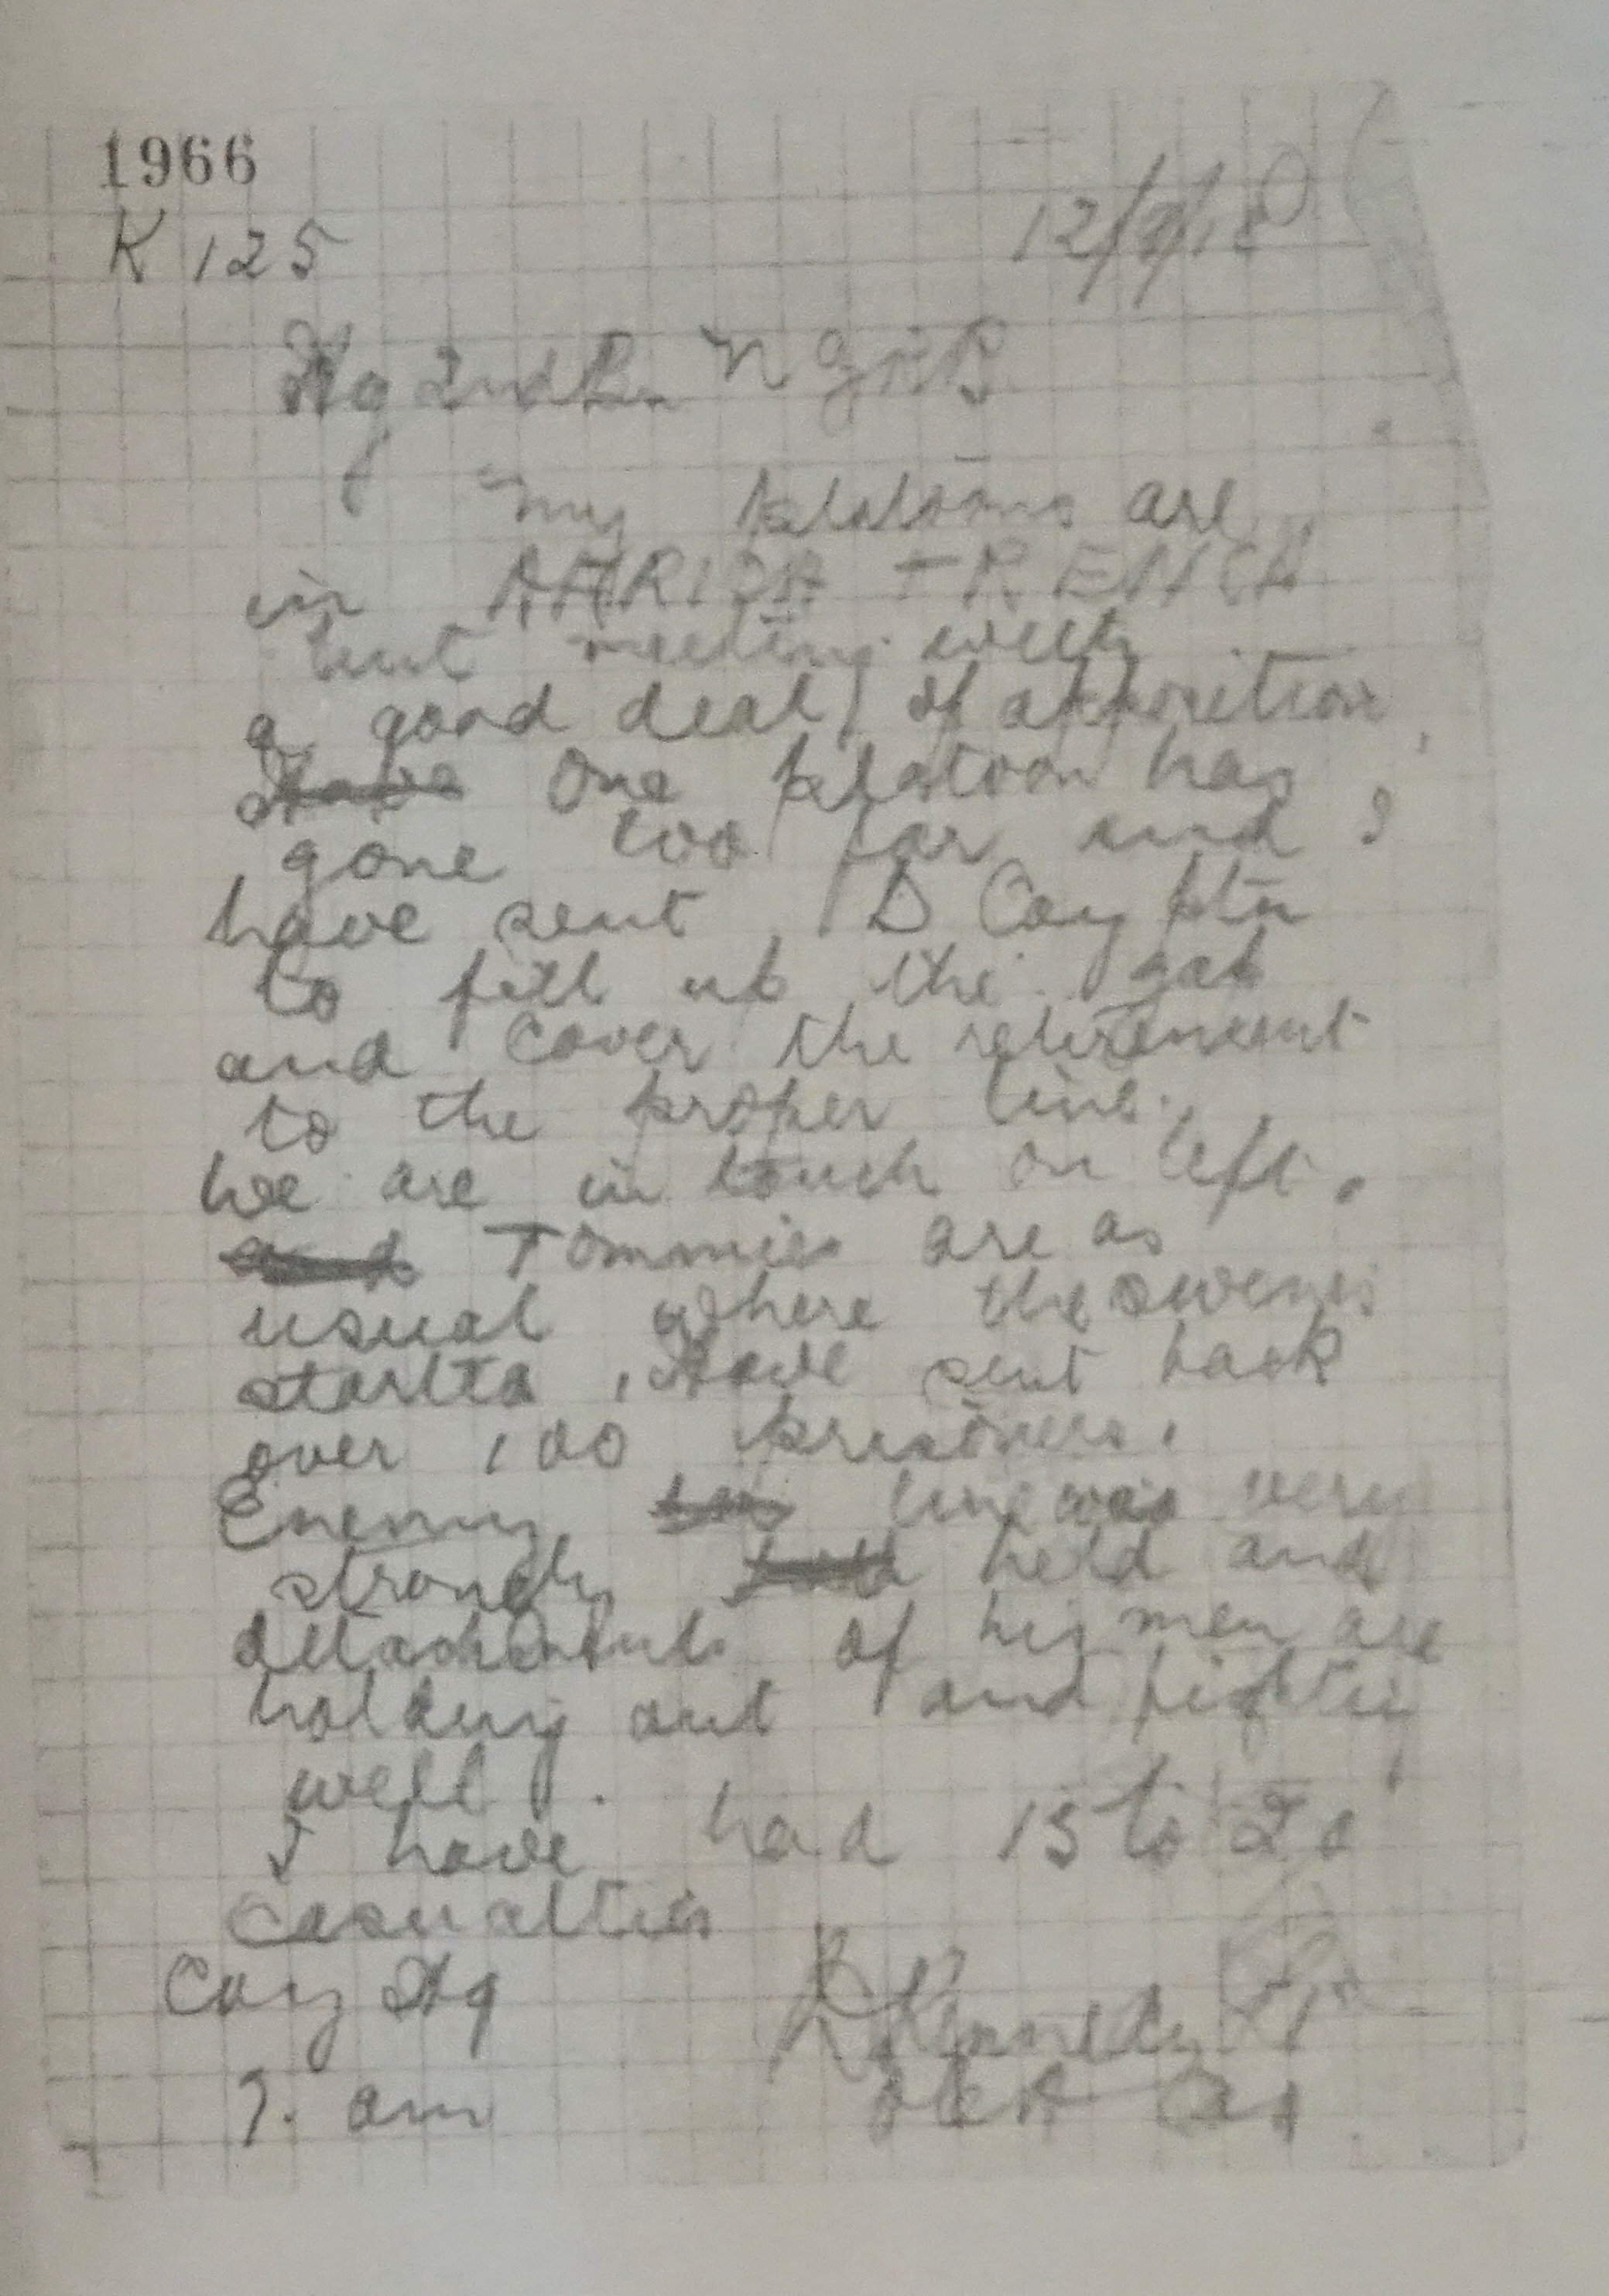 1966
K 125 12/9/18
Hq 2nd Bn N Z R B
My platoons are
in AFRICA TRENCH
but meeting with
a good deal of opposition,
Have One platoon has
gone too far and I
have sent D Coy pltn
to fill up the gap
and cover the retirement
to the proper line.
We are in touch on left.
and Tommies are as
usual where the
started. Have sent back
over 100 prisoners.
Enemy line was very
strongly held held and
detachments of his men are
holding out and fighting
well.
I have had 15 to 20
casualties
Coy Hq Kennedy Lt
7. am OC A Coy